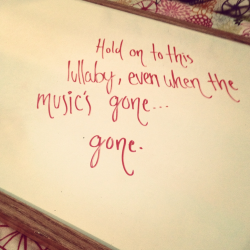 Hold on to this
lullaby, even when the
music's gone...
gone.